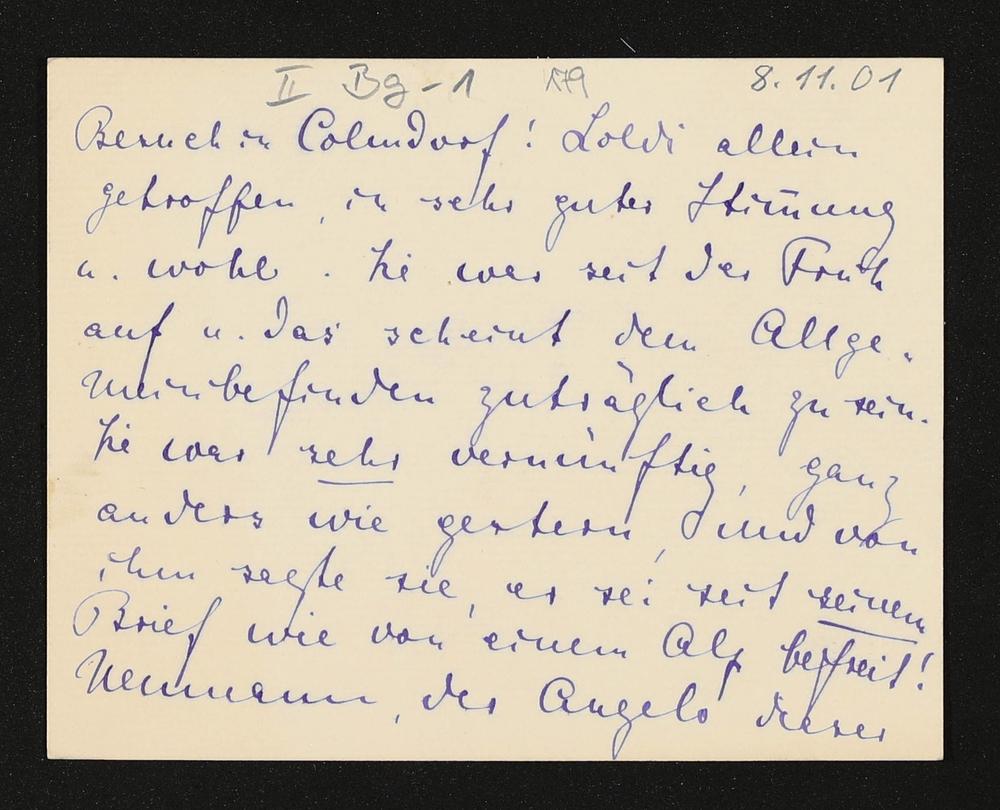 II Bg-1 179 8.11.01
Besuch in Colmdorf! Loldi allein
getroffen, in sehr guter Stim̄ung
u. wohl. Sie war seit der Früh
auf u. das scheint dem Allge-
meinbefinden zuträglich zu sein.
Sie war sehr vernünftig, ganz
anders wie gestern, und von
ihm sagte sie, er sei seit seinem
Brief wie von einem Alp befreit!
Neumann, der Angelo dieser